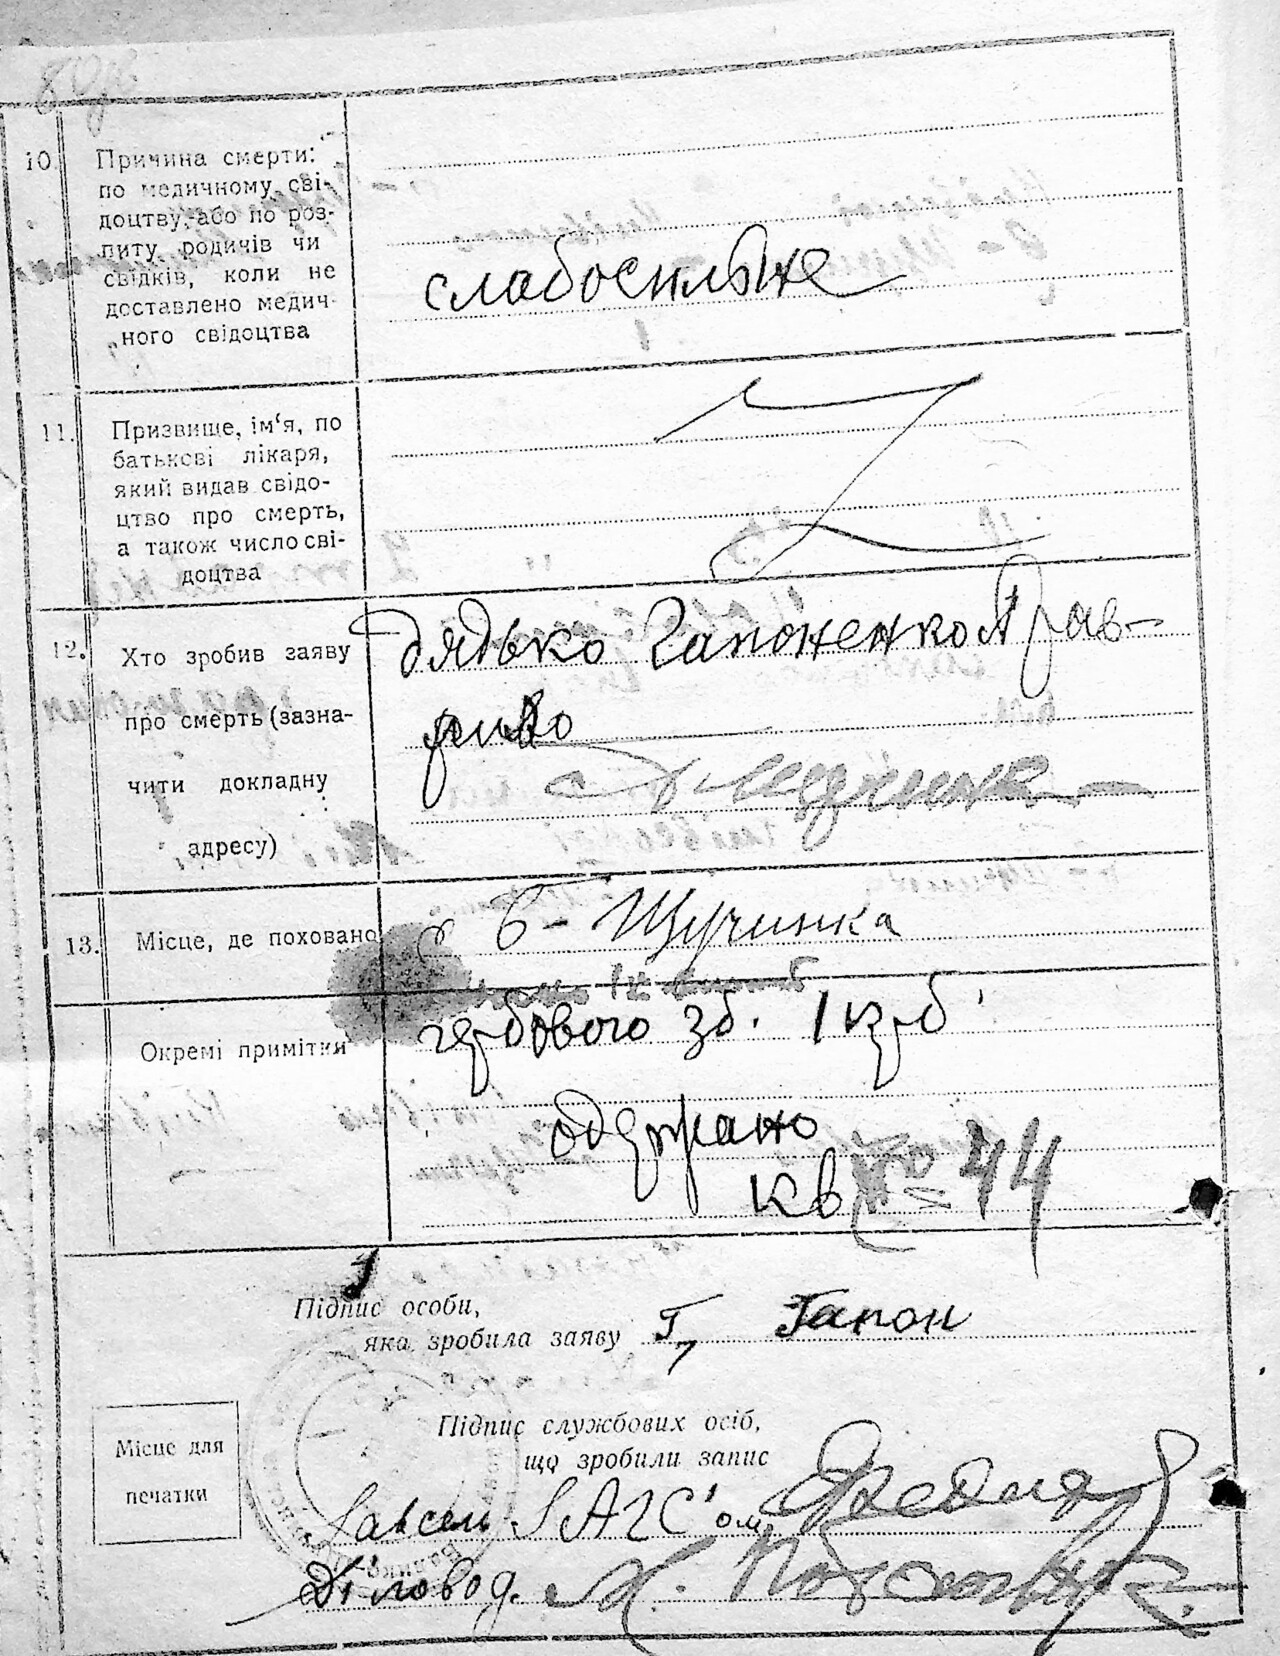 10. Причина смерти:
по медичному сві-
доцтву, або по роз-
питу родичів чи
свідків, коли не
доставлено медич-
ного свідоцтва
слабосильне
11. Призвище, ім‘я, по
батькові лікаря,
який видав свідо-
цтво про смерть,
а також число сві-
доцтва
12. Хто зробив заяву
про смерть (зазна-
чити докладну
адресу)
дядько Гапоненко
13. Місце, де поховано
Б- Щучинка
Окремі примітки
гербового зб. 1 крб
одержано
кв № 44
Підпис особи,
яка зробила заяву Г. Гапон
Місце для
печатки
Підпис службових осіб,
що зробили запис
Завсель ЗАГС'ом
Діловод.